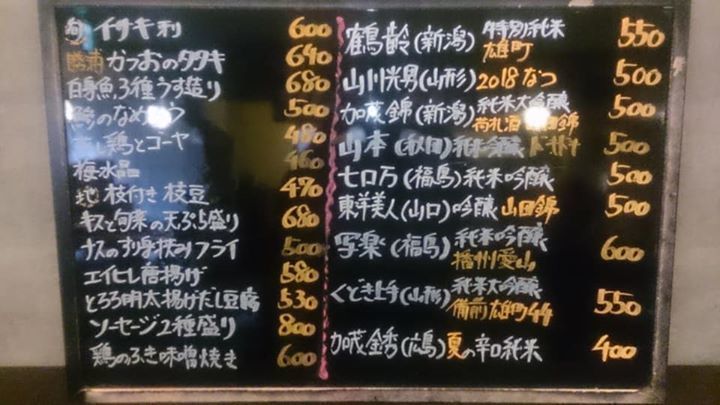 旬 イサキ刺 600
勝浦 かつおのタタキ 640
白身魚3種うす造り 680
鯵のなめろう 500
蒸し鶏とゴーヤ 480
梅水晶 460
地 枝付き枝豆 470
キスと旬菜の天ぷら盛り 680
ナスのすり身挟みフライ 500
エイヒレ唐揚げ 580
とろろ明太揚げだし豆腐 530
ソーセージ2種盛り 800
鶏のふき味噌焼き 600
鶴齢(新潟) 特別純米 雄町 550
山川光男(山形) 2018なつ 500
加茂錦(新潟) 純米大吟醸 荷札酒 田錦 500
山本(秋田)純米吟醸 ドキドキ 500
七ロ万(福島)純米吟醸 500
東洋美人(山口)吟醸 山田錦 500
写楽(福島) 純米吟醸 播州愛山 600
くどき上手(山形) 純米大吟醸 備前雄町44 550
加茂金秀(広島)夏の辛口純米 400